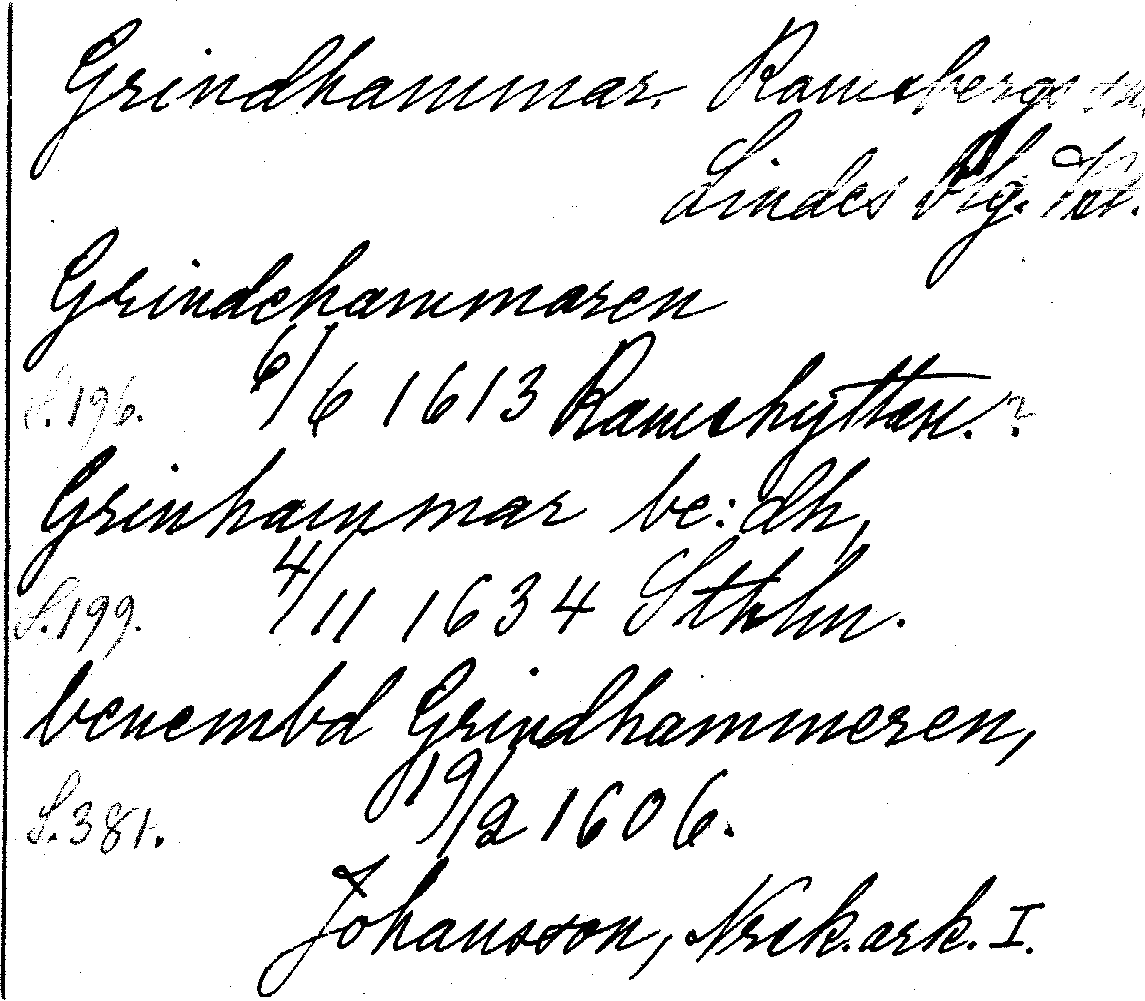 Grindhammar. Ramsbergs sn.
Lindes Blg. Vstm.
Grindehammaren
S. 196. 6/6 1613 Ramshyttan.?
Grinhammar be:dh,
S. 199. 4/11 1634 Sthlm.
benembd Grindhammeren,
S. 381. 19/2 1606.
Johansson, Nrsk. ark. I.